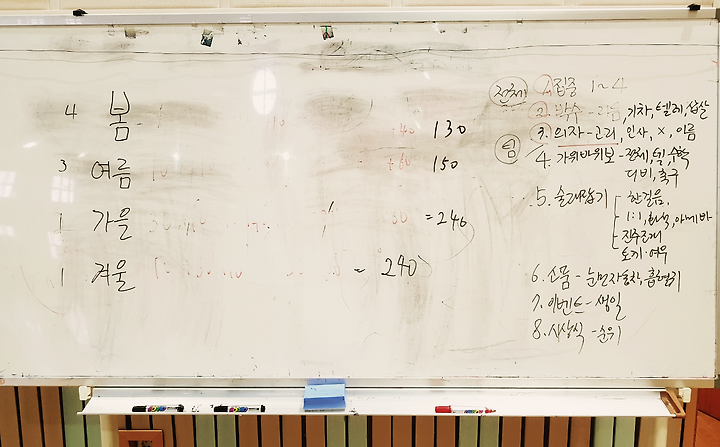 4 봄 130
3 여름 +60 150
1 가을 =246
1 겨울 = 240
전체 1. 집중 1~4
2. 박수 - 기차, 텔레, 삽살
3. 의자 - 고리, 인사, x, 이름
팀
4. 가위바위보 - 전체, 팀, 수학
디비, 축구
5. 술래잡기 한걸음,
1:1, 희석, 아메바
진주조개
토끼·여우
6. 소품 - 눈먼자동차, 흡혈귀
7. 이벤트 - 생일
8. 시상식 - 순위